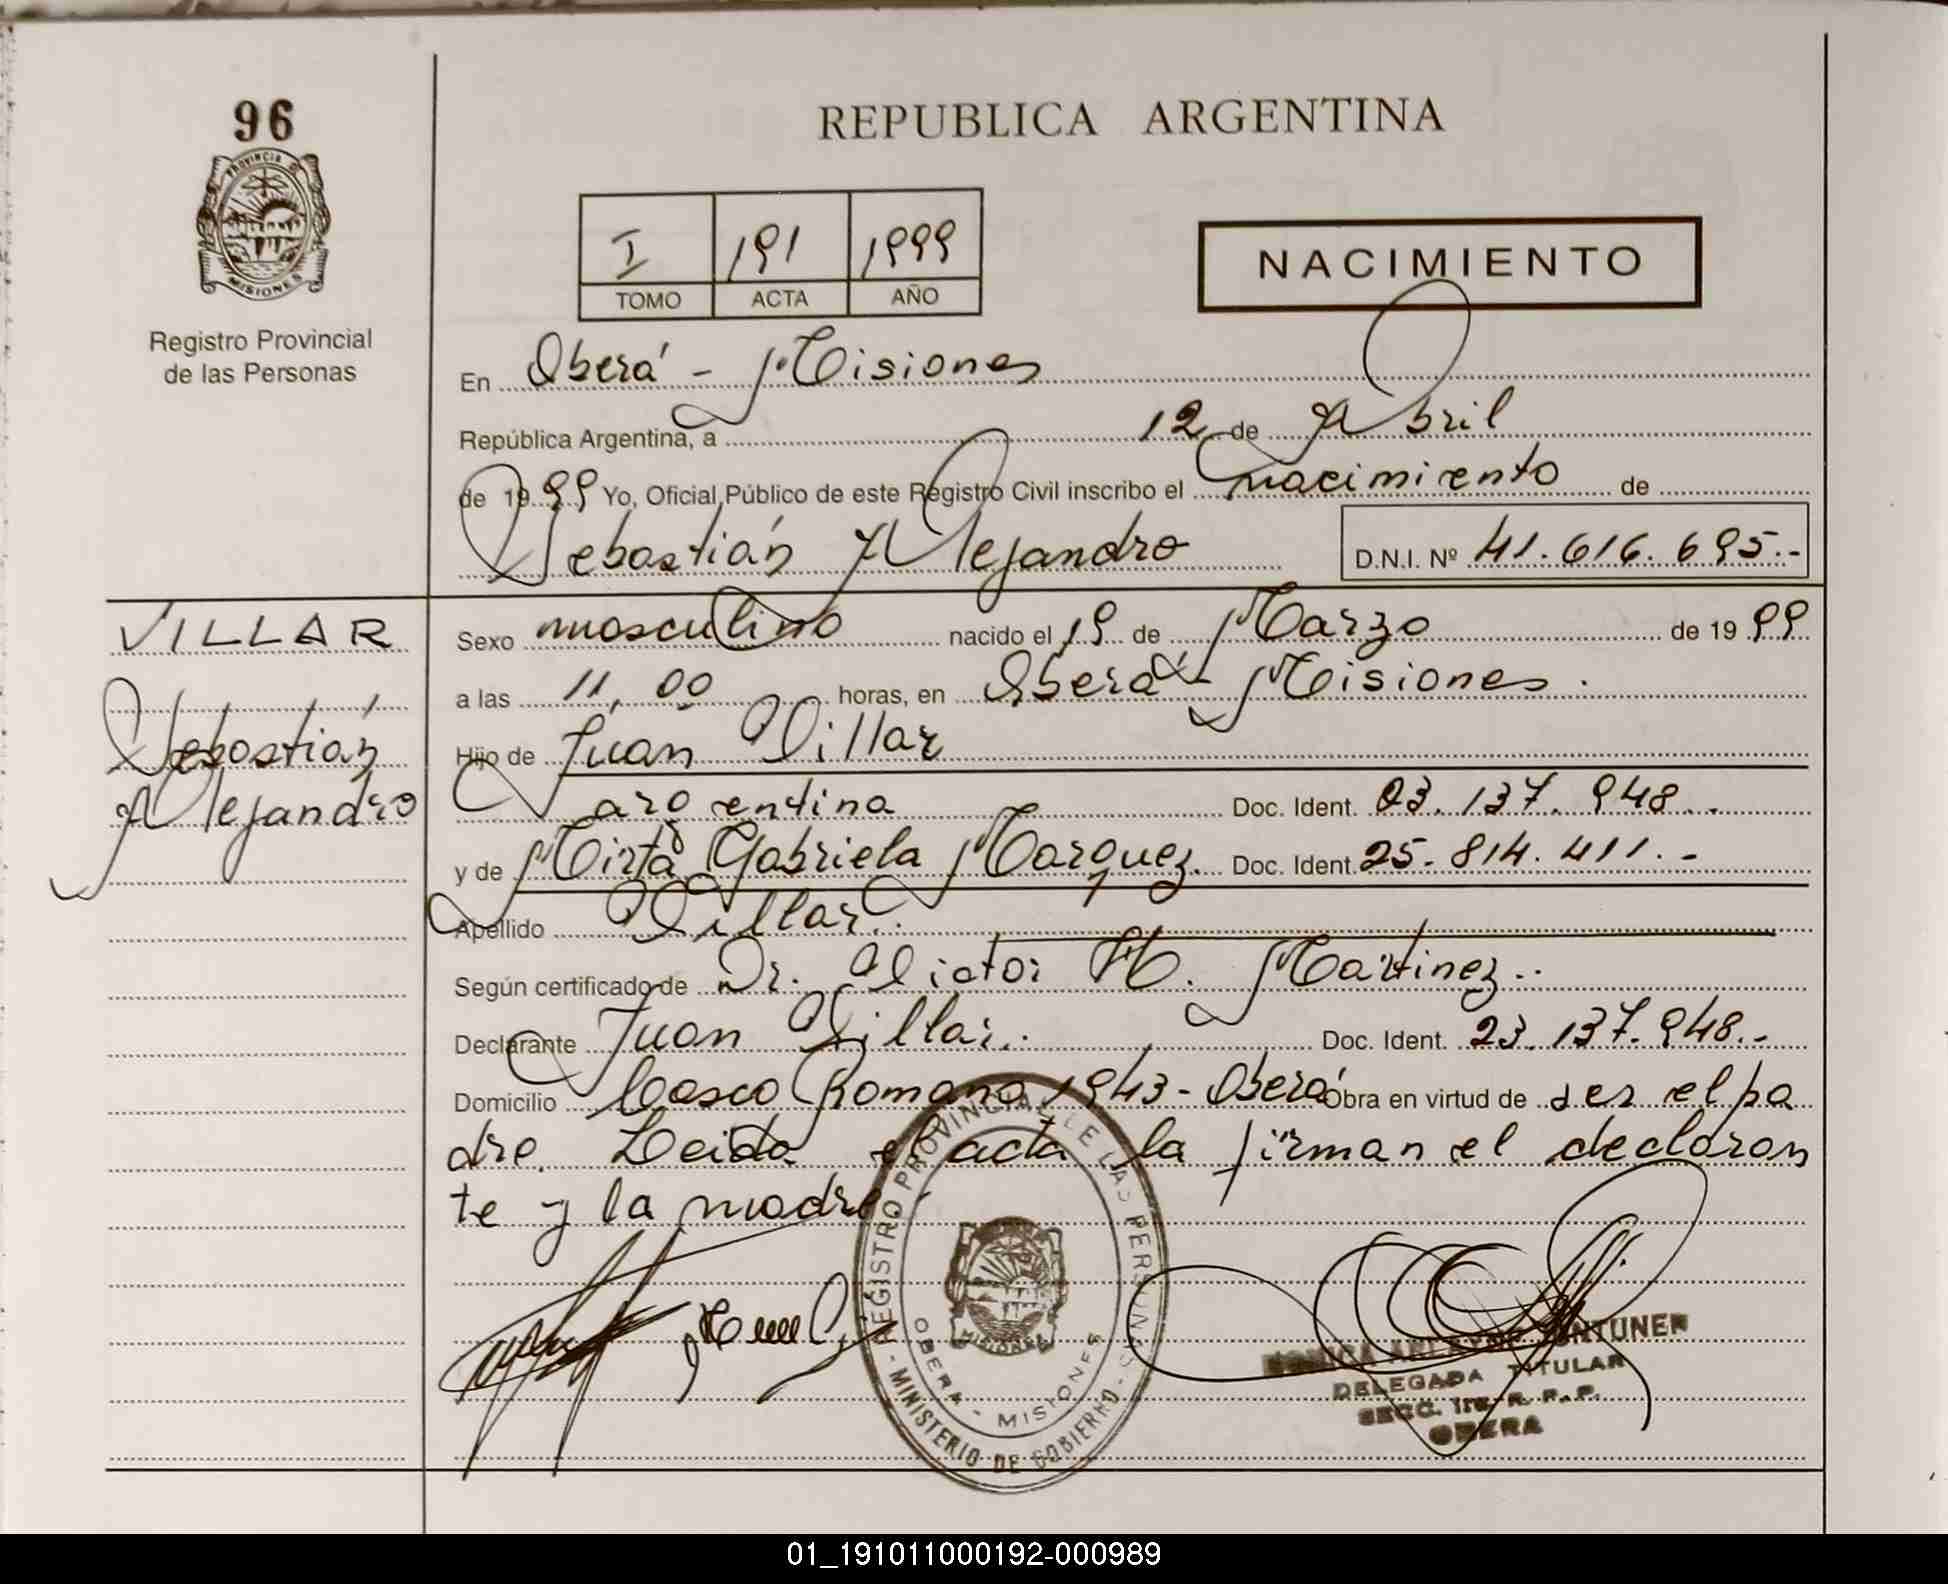 96
PROVINCIA DE
MISIONES
Registro Provincial
de las Personas
REPUBLICA ARGENTINA
I 191 1999
TOMO ACTA AÑO
NACIMIENTO
En Oberá - Misiones
República Argentina, a 12 de Abril
de 1999 Yo, Oficial Público de este Registro Civil inscribo el nacimiento de
Sebastián Alejandro D.N.I. Nº 41.616.695.-
VILLAR
Sebastián
Alejandro
Sexo masculino nacido el 19 de Marzo de 1999
a las 11,00 horas, en Oberá - Misiones.
Hijo de Juan Villar
argentina Doc. Ident. 23.137.948.-
y de Mirta Gabriela Marquez. Doc. Ident. 25.814.411.-
Apellido Villar.
Según certificado de Dr. Victor H. Martinez..
Declarante Juan Villar. Doc. Ident. 23.137.948.-
Domicilio Casco Romano 1943 - Oberá Obra en virtud de ser el pa
dre. Leida el acta la firman el declaran
te y la madre.
REGISTRO PROVINCIAL DE LAS PERSONAS
MINISTERIO DE GOBIERNO
OBERA - MISIONES
MISIONES
DELEGADA TITULAR
SECC. 1ra. R. P. P.
OBERA
01_191011000192-000989